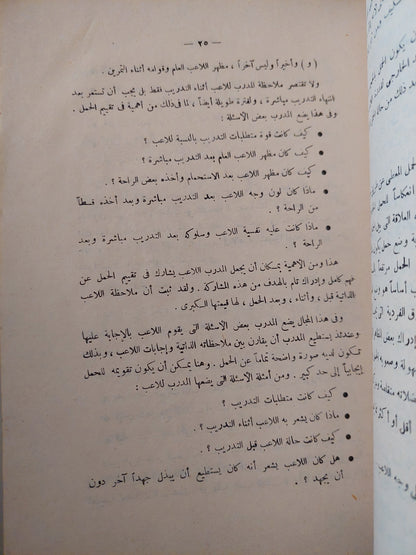 — ٢٥ —
( و ) وأخيراً وليس آخراً ، مظهر اللاعب العام وقوامه أثناء التمرين .
ولا تقتصر ملاحظة المدرب للاعب أثناء التدريب فقط بل يجب أن تستمر بعد
انتهاء التدريب مباشرة ، ولفترة طويلة أيضاً ، لما فى ذلك من أهمية فى تقييم الحمل .
وفى هذا يضع المدرب بعض الأسئلة :
• كيف كانت قوة متطلبات التدريب بالنسبة للاعب ؟
• كيف كان مظهر اللاعب العام بعد التدريب مباشرة ؟
• كيف كان مظهر اللاعب بعد الاستحمام وأخذه بعض الراحة ؟ .
• ماذا كان لون وجه اللاعب بعد التدريب مباشرة وبعد أخذه قسطاً
من الراحة ؟ .
• ماذا كانت عليه نفسية اللاعب وسلوكه بعد التدريب مباشرة وبعد
الراحة ؟ .
هذا ومن الأهمية بمكان أن يجعل المدرب اللاعب يشارك فى تقييم الحمل عن
فهم كامل وإدراك تام بالهدف من هذه المشاركة . ولقد ثبت أن ملاحظة اللاعب
الذاتية قبل ، وأثناء ، وبعد الحمل ، لها قيمتها الكبرى .
وفى هذا المجال يضع المدرب بعض الأسئلة التى يقوم اللاعب بالإجابة عليها
وعندئذ يستطيع المدرب أن يقارن بين ملاحظاته الذاتية وإجابات اللاعب ، وبذلك
تتكون لديه صورة واضحة تماماً عن الحمل . وهنا يمكن أن يكون تقويمه للحمل
إيجابياً إلى حد كبير . ومن أمثلة الأسئلة التى يضعها المدرب للاعب :
• كيف كانت متطلبات التدريب ؟
• ماذا كان يشعر به اللاعب أثناء التدريب ؟ .
• كيف كانت حالة اللاعب قبل التدريب ؟ .
• هل كان اللاعب يشعر أنه كان يستطيع أن يبذل جهداً آخر دون
أن يجهد ؟ .